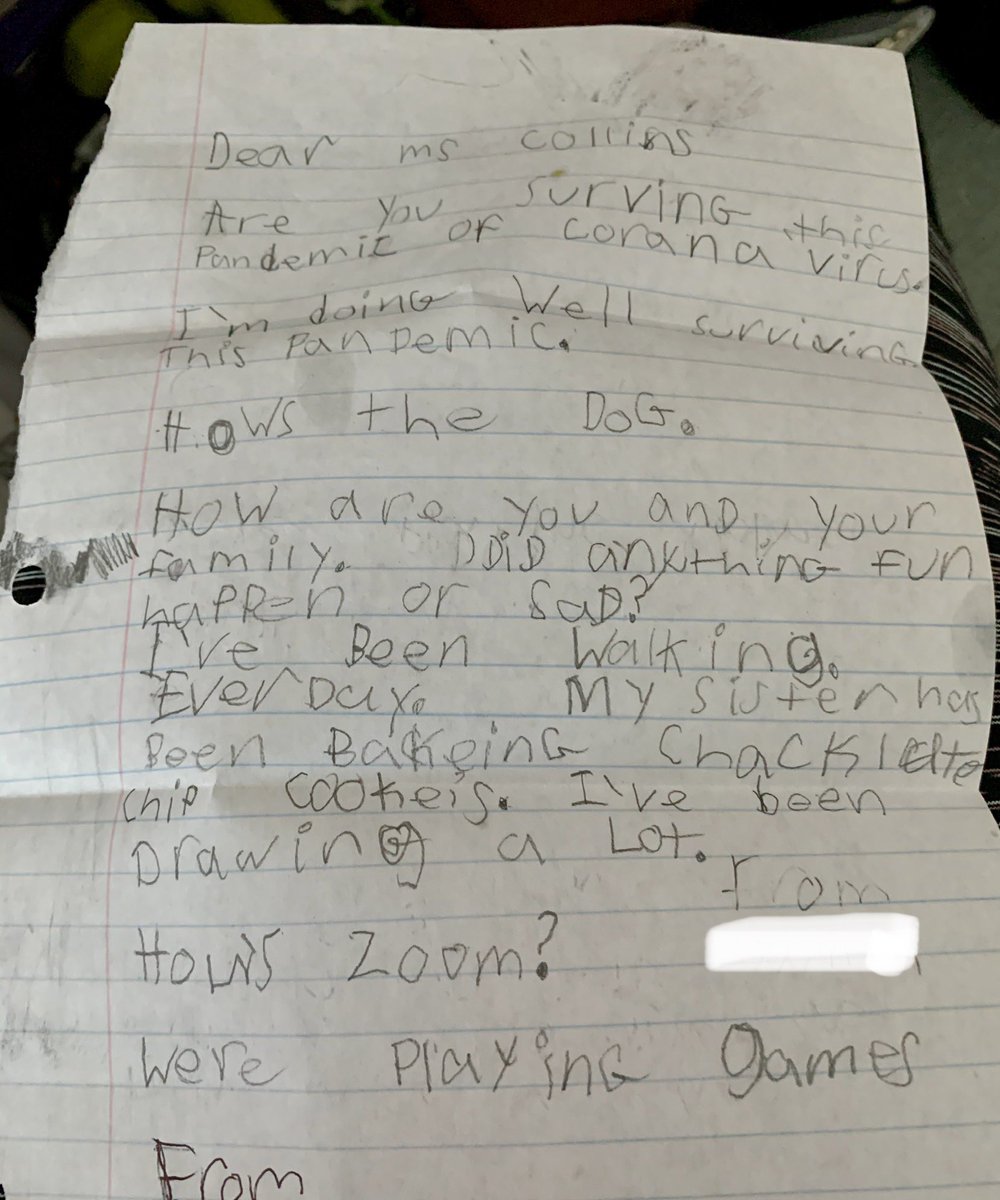 Dear ms collins
Are you surving this
Pandemic of corana virus.
I'm doing Well surviving
This PanDemic.
Hows the DoG.
How are you and your
family. DDiD ankthing fun
happen or SaD?
I've Been Walking.
EverDay. My sister has
Been Bakeing Chacklette
chip cookeis. I've been
Drawing a Lot.
From
How's Zoom?
We're Playing games
From